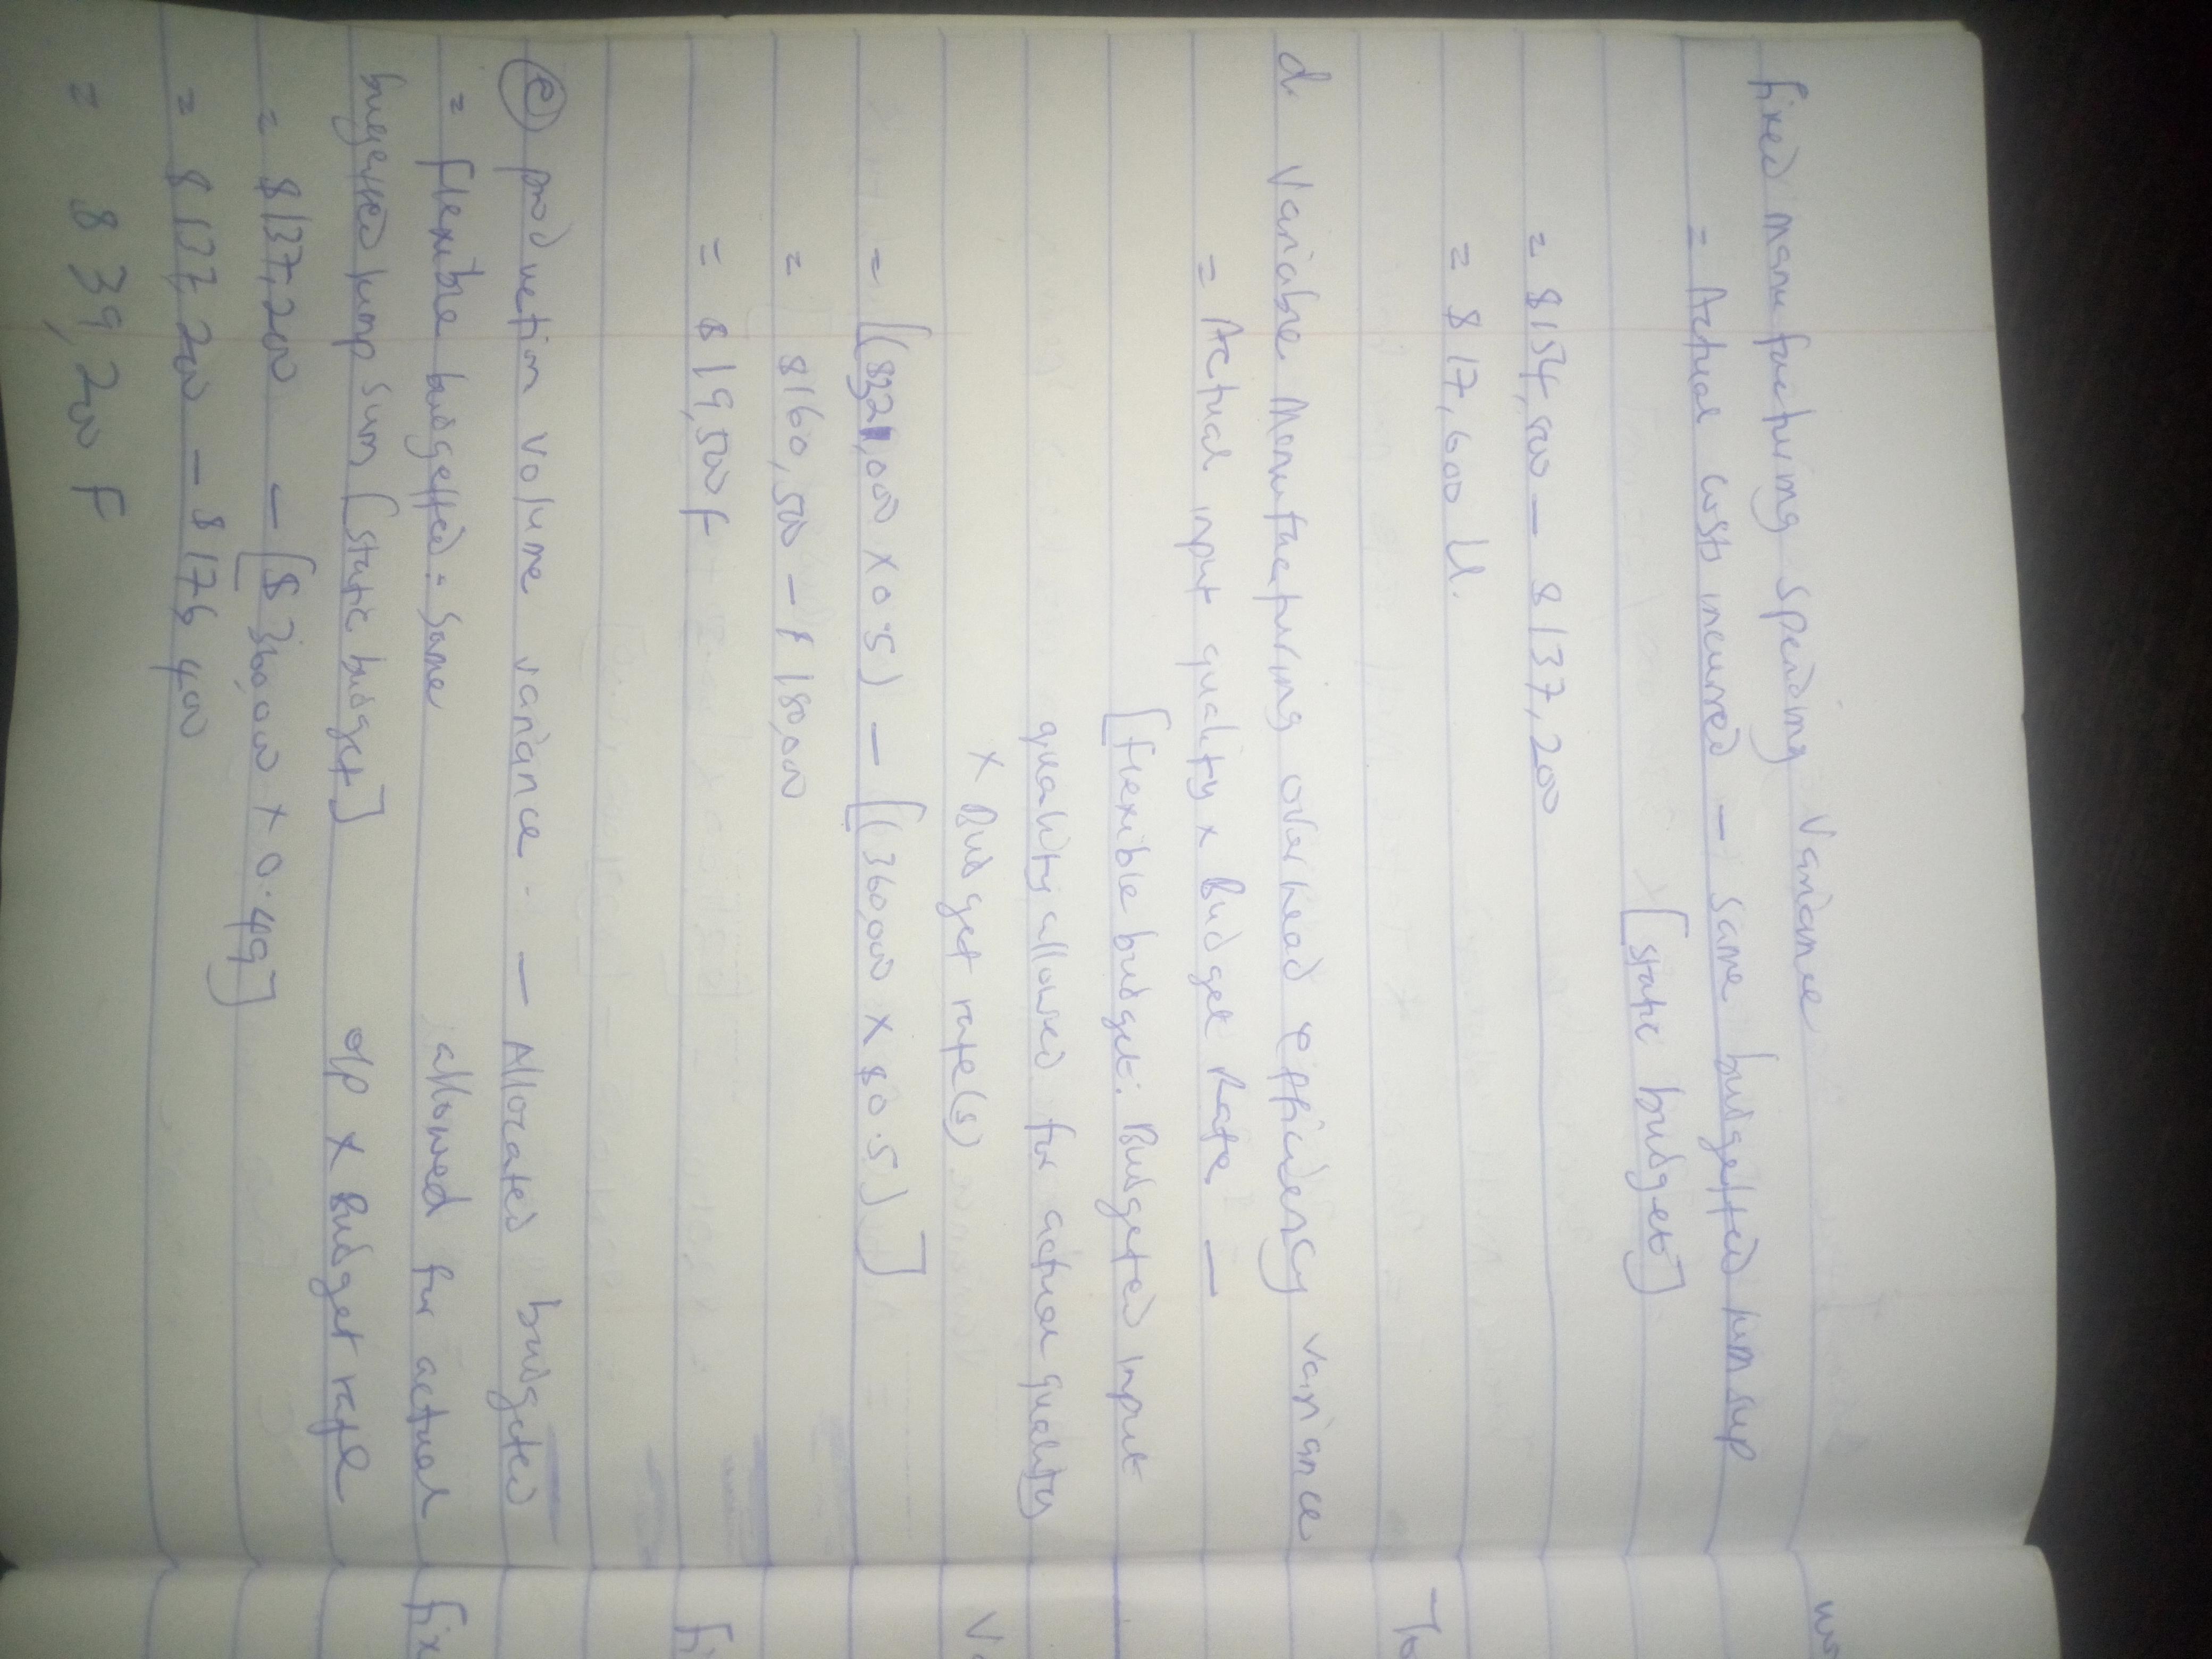 fixed manufacturing spending Variance
= Actual costs incurred – same budgetted lumsup
[static budget]
= $154,800 – $137,200
= $17,600 U.
d. Variable Manufacturing overhead efficiency variance
= Actual input quality x Budget Rate –
[flexible budget: Budgeted input
quality allowed for actual quality
x Budget rate(s)
= [($321,000 x 0.5) – [(360,000 x $0.5)]
= $160,500 – $180,000
= $19,500 f
(e) production volume variance. – Allocated budgeted
= flexible budgetted = same allowed for actual
budgetted lump sum [static budget] o/p x Budget rate
= $137,200 – [$360,000 x 0.49]
= $137,200 – $176,400
= $39,200 F